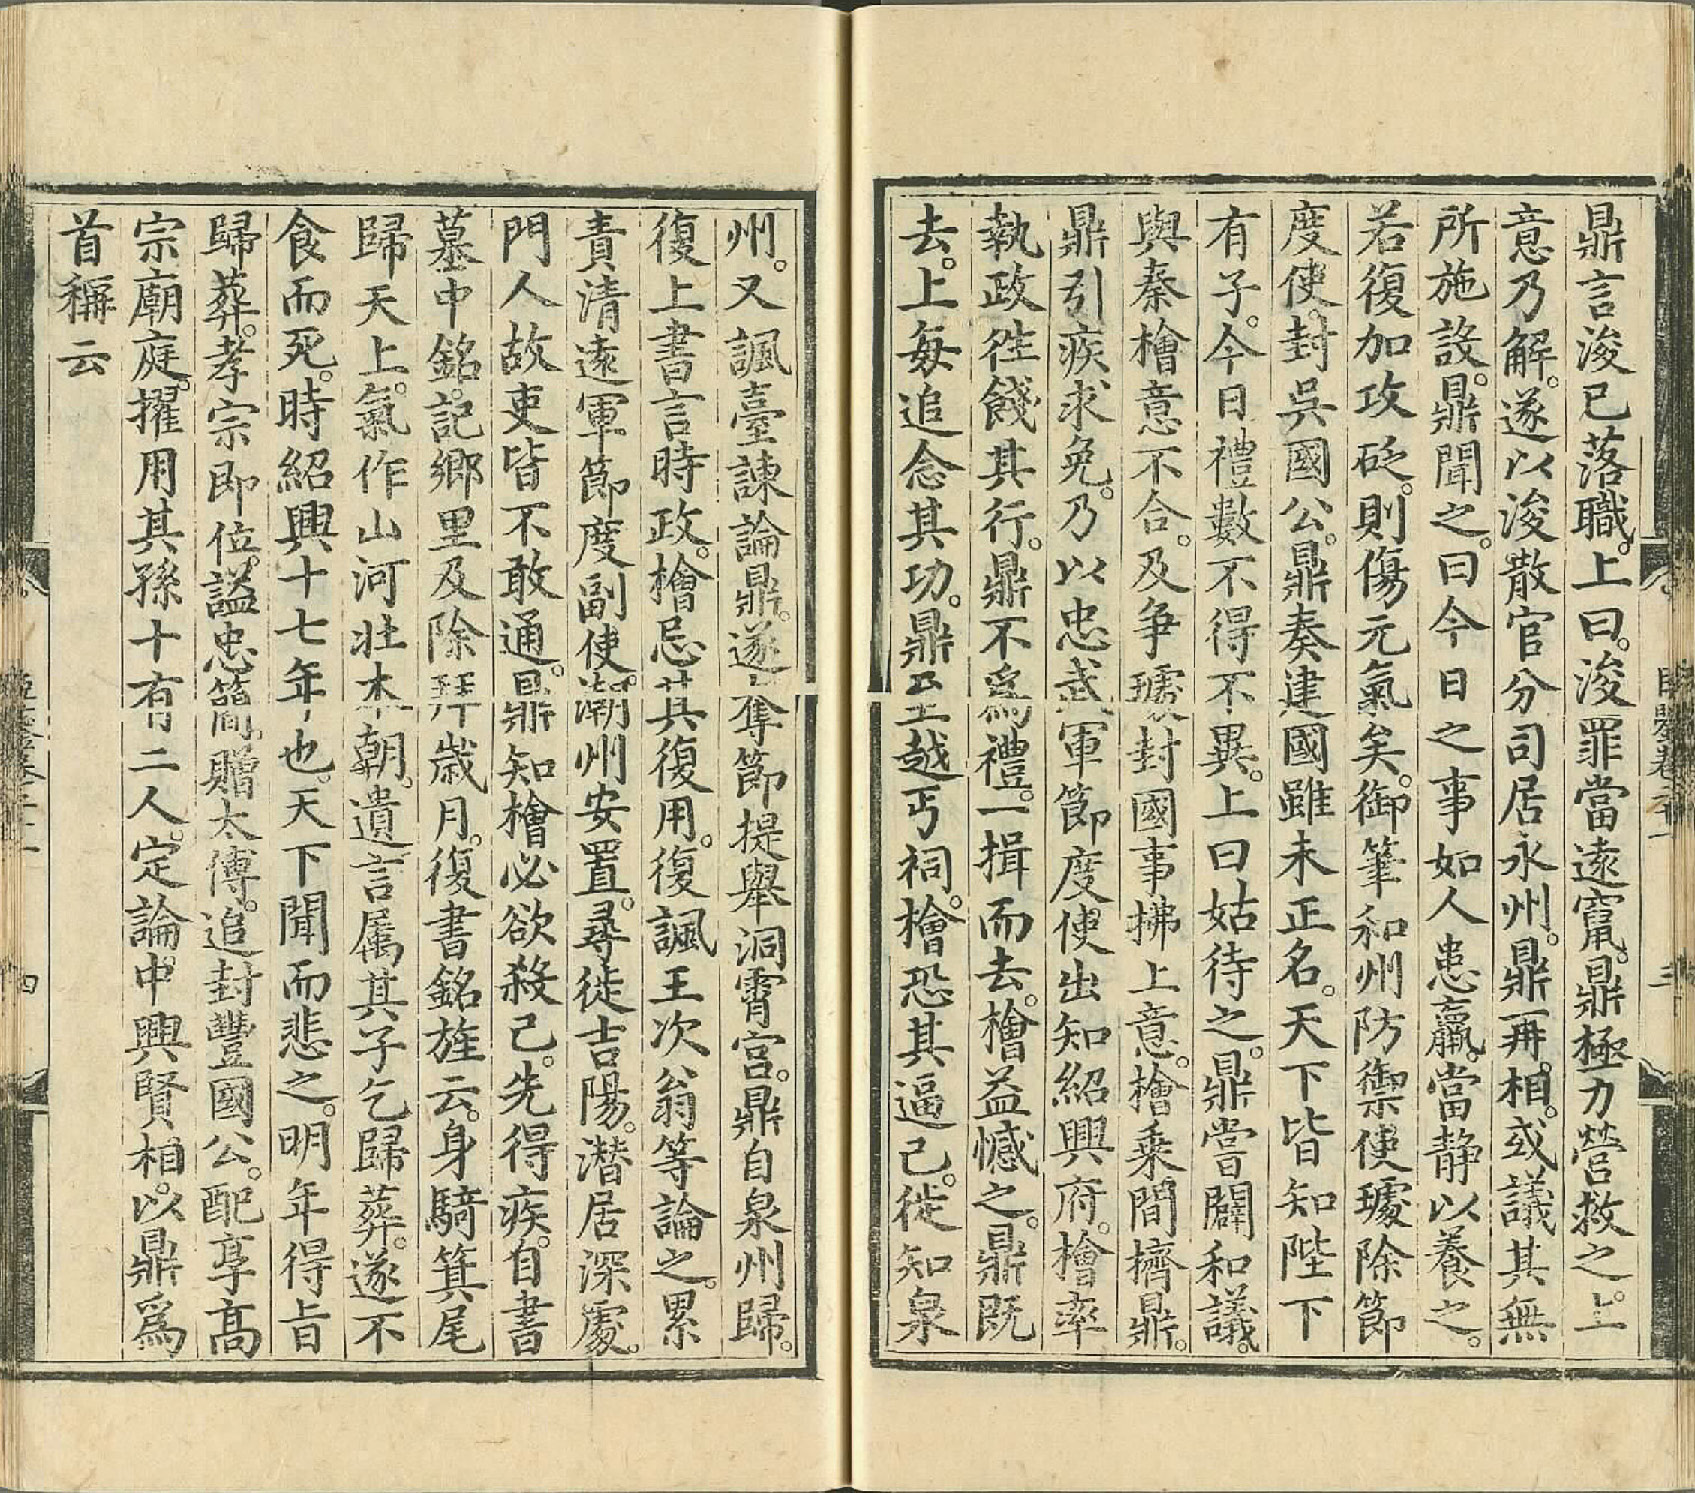 鼎言浚已落職。上曰。浚罪當遠竄。鼎極力營救之。上
意乃解。遂以浚散官分司居永州。鼎再相。或議其無
所施設。鼎聞之。曰今日之事如人患羸。當静以養之。
若復加攻砭。則傷元氣矣。御筆和州防禦使璩除節
度使。封吳國公。鼎奏建國雖未正名。天下皆知陛下
有子。今日禮數不得不異。上曰姑待之。鼎嘗闢和議。
與秦檜意不合。及争璩封國事拂上意。檜乗間擠鼎。
鼎引疾求免。乃以忠武軍節度使出知紹興府。檜率
執政徃餞其行。鼎不爲禮。一揖而去。檜益憾之。鼎既
去。上每追念其功。鼎至越丐祠。檜恐其逼己。徙知泉
州。又諷臺諫論鼎。遂奪節提舉洞霄宫。鼎自泉州歸。
復上書言時政。檜忌其復用。復諷王次翁等論之。累
責清遠軍節度副使。潮州安置。尋徙吉陽。潜居深處。
門人故吏皆不敢通。鼎知檜必欲殺己。先得疾。自書
墓中銘。記鄉里及除拜歲月。復書銘旌云。身騎箕尾
歸天上。氣作山河壮本朝。遺言属其子乞歸葬。遂不
食而死。時紹興十七年也。天下聞而悲之。明年得旨
歸葬。孝宗即位。謚忠簡。贈太傅。追封豐國公。配享高
宗廟庭。擢用其孫十有二人。定論中興賢相。以鼎爲
首稱云